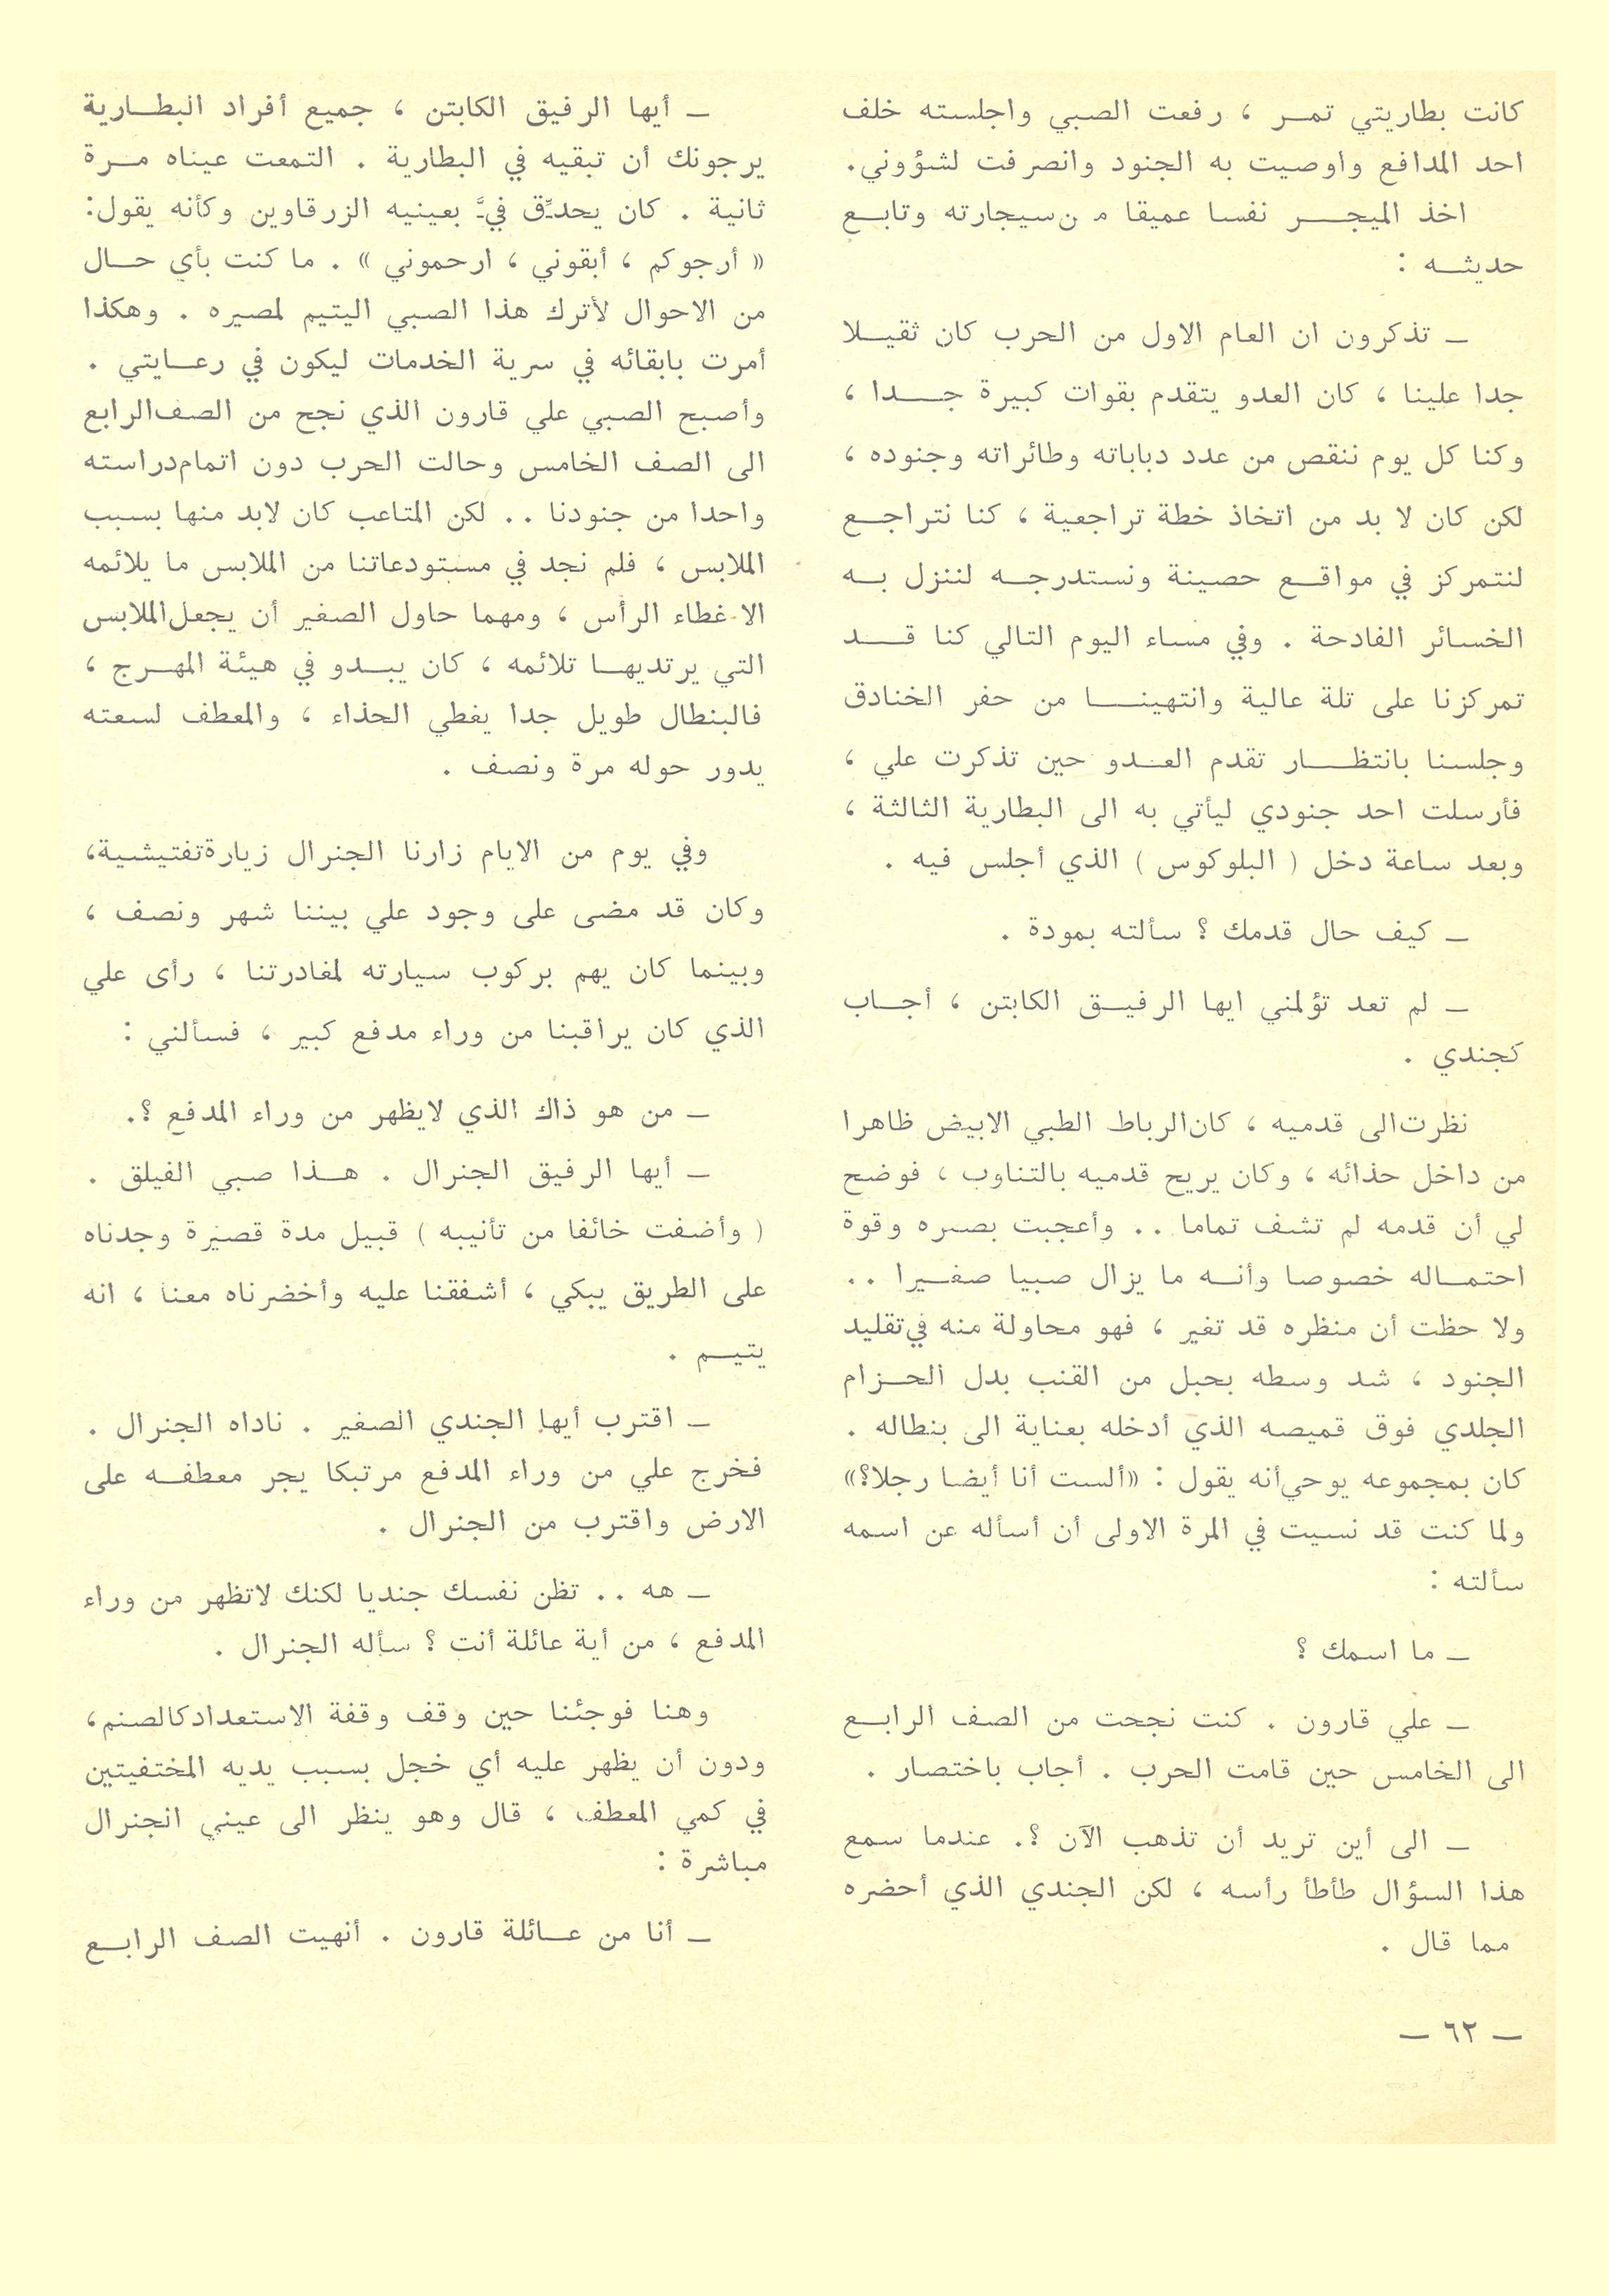 كانت بطاريتي تمر ، رفعت الصبي واجلسته خلف
احد المدافع واوصيت به الجنود وانصرفت لشؤوني.
اخذ الميجر نفسا عميقا م ن سيجارته وتابع
حديثه :
ـ تذكرون ان العام الاول من الحرب كان ثقيلا
جدا علينا ، كان العدو يتقدم بقوات كبيرة جدا ،
وكنا كل يوم ننقص من عدد دباباته وطائراته وجنوده ،
لكن كان لا بد من اتخاذ خطة تراجعية ، كنا نتراجع
لنتمركز في مواقع حصينة ونستدرجه لننزل به
الخسائر الفادحة . وفي مساء اليوم التالي كنا قد
تمركزنا على تلة عالية وانتهينا من حفر الخنادق
وجلسنا بانتظار تقدم العدو حين تذكرت علي ،
فأرسلت احد جنودي ليأتي به الى البطارية الثالثة ،
وبعد ساعة دخل ( البلوكوس ) الذي أجلس فيه .
ـ كيف حال قدمك ؟ سألته بمودة .
ـ لم تعد تؤلمني ايها الرفيق الكابتن ، أجاب
كجندي .
نظرت الى قدميه ، كان الرباط الطبي الابيض ظاهرا
من داخل حذائه ، وكان يريح قدميه بالتناوب ، فوضح
لي أن قدمه لم تشف تماما .. وأعجبت بصبره وقوة
احتماله خصوصا وأنه ما يزال صبيا صغيرا ..
ولا حظت أن منظره قد تغير ، فهو محاولة منه في تقليد
الجنود ، شد وسطه بحبل من القنب بدل الحزام
الجلدي فوق قميصه الذي أدخله بعناية الى بنطاله .
كان بمجموعه يوحي أنه يقول : «ألست أنا أيضا رجلا؟»
ولما كنت قد نسيت في المرة الاولى أن أسأله عن اسمه
سألته :
ـ ما اسمك ؟
ـ علي قارون . كنت نجحت من الصف الرابع
الى الخامس حين قامت الحرب . أجاب باختصار .
ـ الى أين تريد أن تذهب الآن ؟. عندما سمع
هذا السؤال طأطأ رأسه ، لكن الجندي الذي أحضره
مما قال .
ـ أيها الرفيق الكابتن ، جميع أفراد البطارية
يرجونك أن تبقيه في البطارية . التمعت عيناه مرة
ثانية . كان يحدِّق فيَّ بعينيه الزرقاوين وكأنه يقول:
« أرجوكم ، أبقوني ، ارحموني » . ما كنت بأي حال
من الاحوال لأترك هذا الصبي اليتيم لمصيره . وهكذا
أمرت بابقائه في سرية الخدمات ليكون في رعايتي .
وأصبح الصبي علي قارون الذي نجح من الصف الرابع
الى الصف الخامس وحالت الحرب دون اتمام دراسته
واحدا من جنودنا .. لكن المتاعب كان لابد منها بسبب
الملابس ، فلم نجد في مستودعاتنا من الملابس ما يلائمه
الا غطاء الرأس ، ومهما حاول الصغير أن يجعل الملابس
التي يرتديها تلائمه ، كان يبدو في هيئة المهرج ،
فالبنطال طويل جدا يغطي الحذاء ، والمعطف لسعته
يدور حوله مرة ونصف .
وفي يوم من الايام زارنا الجنرال زيارة تفتيشية،
وكان قد مضى على وجود علي بيننا شهر ونصف ،
وبينما كان يهم بركوب سيارته لمغادرتنا ، رأى علي
الذي كان يراقبنا من وراء مدفع كبير ، فسألني :
ـ من هو ذاك الذي لايظهر من وراء المدفع ؟.
ـ أيها الرفيق الجنرال . هذا صبي الفيلق .
( وأضفت خائفا من تأنيبه ) قبيل مدة قصيرة وجدناه
على الطريق يبكي ، أشفقنا عليه وأخضرناه معنا ، انه
يتيم .
ـ اقترب أيها الجندي الصغير . ناداه الجنرال .
فخرج علي من وراء المدفع مرتبكا يجر معطفه على
الارض واقترب من الجنرال .
ـ هه .. تظن نفسك جنديا لكنك لاتظهر من وراء
المدفع ، من أية عائلة أنت ؟ سأله الجنرال .
وهنا فوجئنا حين وقف وقفة الاستعداد كالصنم،
ودون أن يظهر عليه أي خجل بسبب يديه المختفيتين
في كمي المعطف ، قال وهو ينظر الى عيني الجنرال
مباشرة :
ـ أنا من عائلة قارون . أنهيت الصف الرابع
ـ ٦٢ ـ